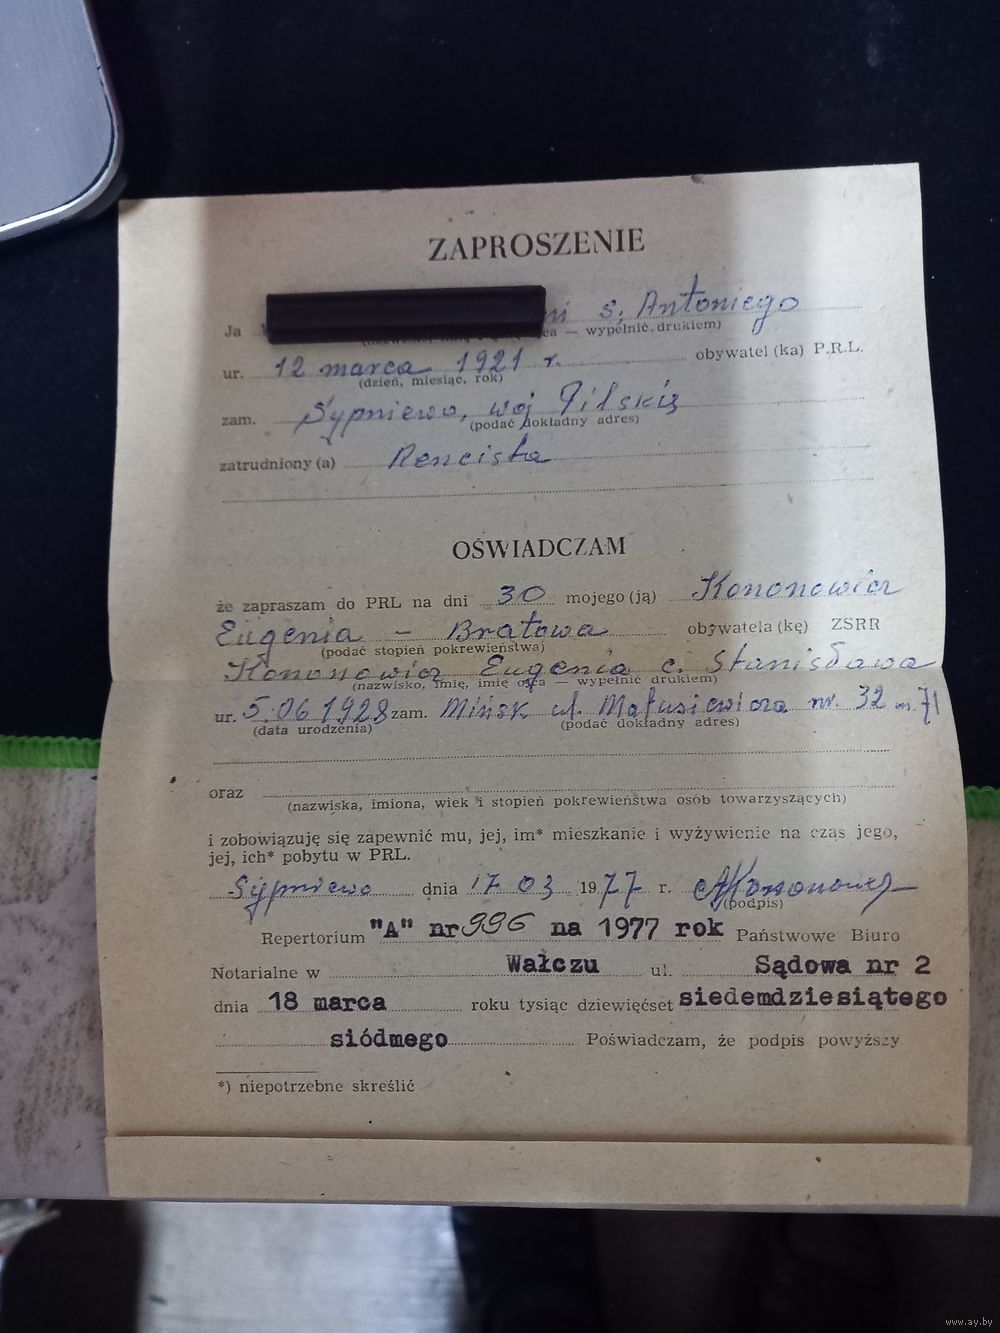 ZAPROSZENIE
Ja ni s. Antoniego
ca — wypełnić drukiem)
ur. 12 marca 1921 r. obywatel (ka) P.R.L.
(dzień, miesiąc, rok)
zam. Sypniewo, woj Pilskie
(podać dokładny adres)
zatrudniony (a) Rencista
OŚWIADCZAM
że zapraszam do PRL na dni 30 mojego (ją) Kononowicz
Eugenia – Bratowa obywatela (kę) ZSRR
(podać stopień pokrewieństwa)
Kononowicz Eugenia c. Stanisława
(nazwisko, imię, imię ojca — wypełnić drukiem)
ur. 5.06.1928 zam. Mińsk ul. Matusiewicza nr. 32 m. 71
(data urodzenia) (podać dokładny adres)
oraz
(nazwiska, imiona, wiek i stopień pokrewieństwa osób towarzyszących)
i zobowiązuję się zapewnić mu, jej, im* mieszkanie i wyżywienie na czas jego,
jej, ich* pobytu w PRL.
Sypniewo dnia 17 03 1977 r.
(podpis)
Repertorium "A" nr 996 na 1977 rok Państwowe Biuro
Notarialne w Wałczu ul. Sądowa nr 2
dnia 18 marca roku tysiąc dziewięćset siedemdziesiątego
siódmego Poświadczam, że podpis powyższy
*) niepotrzebne skreślić
www.ay.by